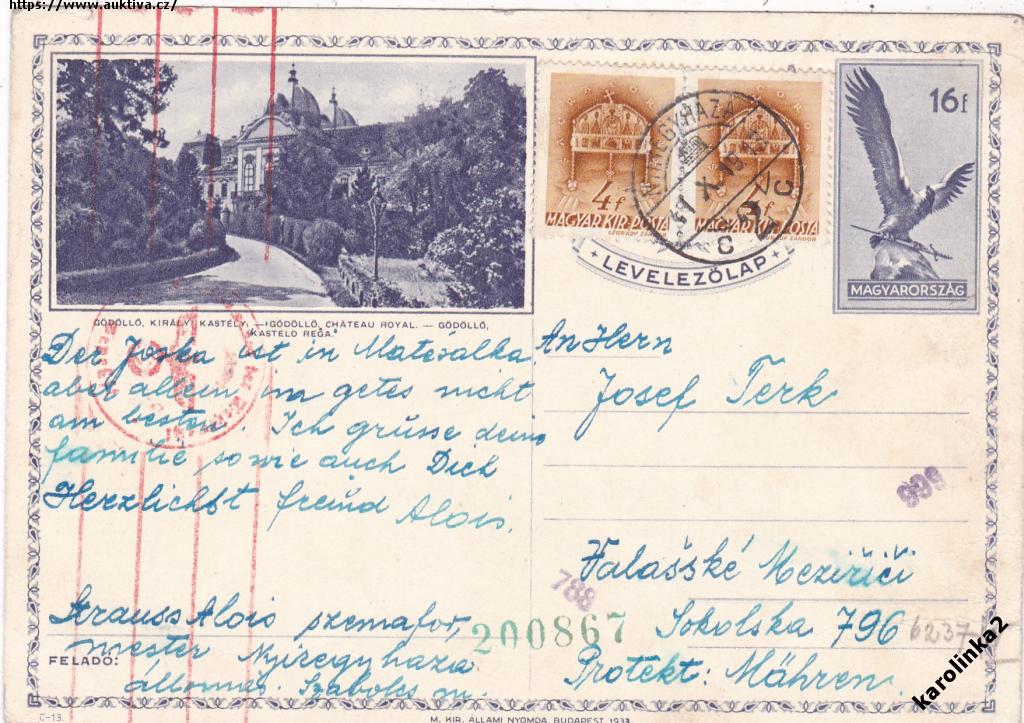 https://www.auktiva.cz/
16f
4f
MAGYAR KIR. POSTA
LÉGRÁDY SÁNDOR
MAGYAR KIR. POSTA
LÉGRÁDY SÁNDOR
41 X.
MAGYARORSZÁG
LEVELEZŐLAP
GÖDÖLLŐ, KIRÁLYI KASTÉLY. — GÖDÖLLŐ, CHÂTEAU ROYAL. — GÖDÖLLŐ,
KASTELO REĜA.
Der Joska ist in Matesalka
aber allein, im getes nicht
am besten. Ich grüsse deine
familie sowie auch Dich
Herzlichst freund Alois.
An Hern
Josef Terk
999
Valašské Meziřiči
Sokolska 796
Protekt: Mähren.
788
200867
6237
Strauss Alois szemafor,
mester Nyiregyhaza
FELADÓ:
állomás. Szabolcs m.
C-13.
M. KIR. ÁLLAMI NYOMDA, BUDAPEST 1933.
karolinka2